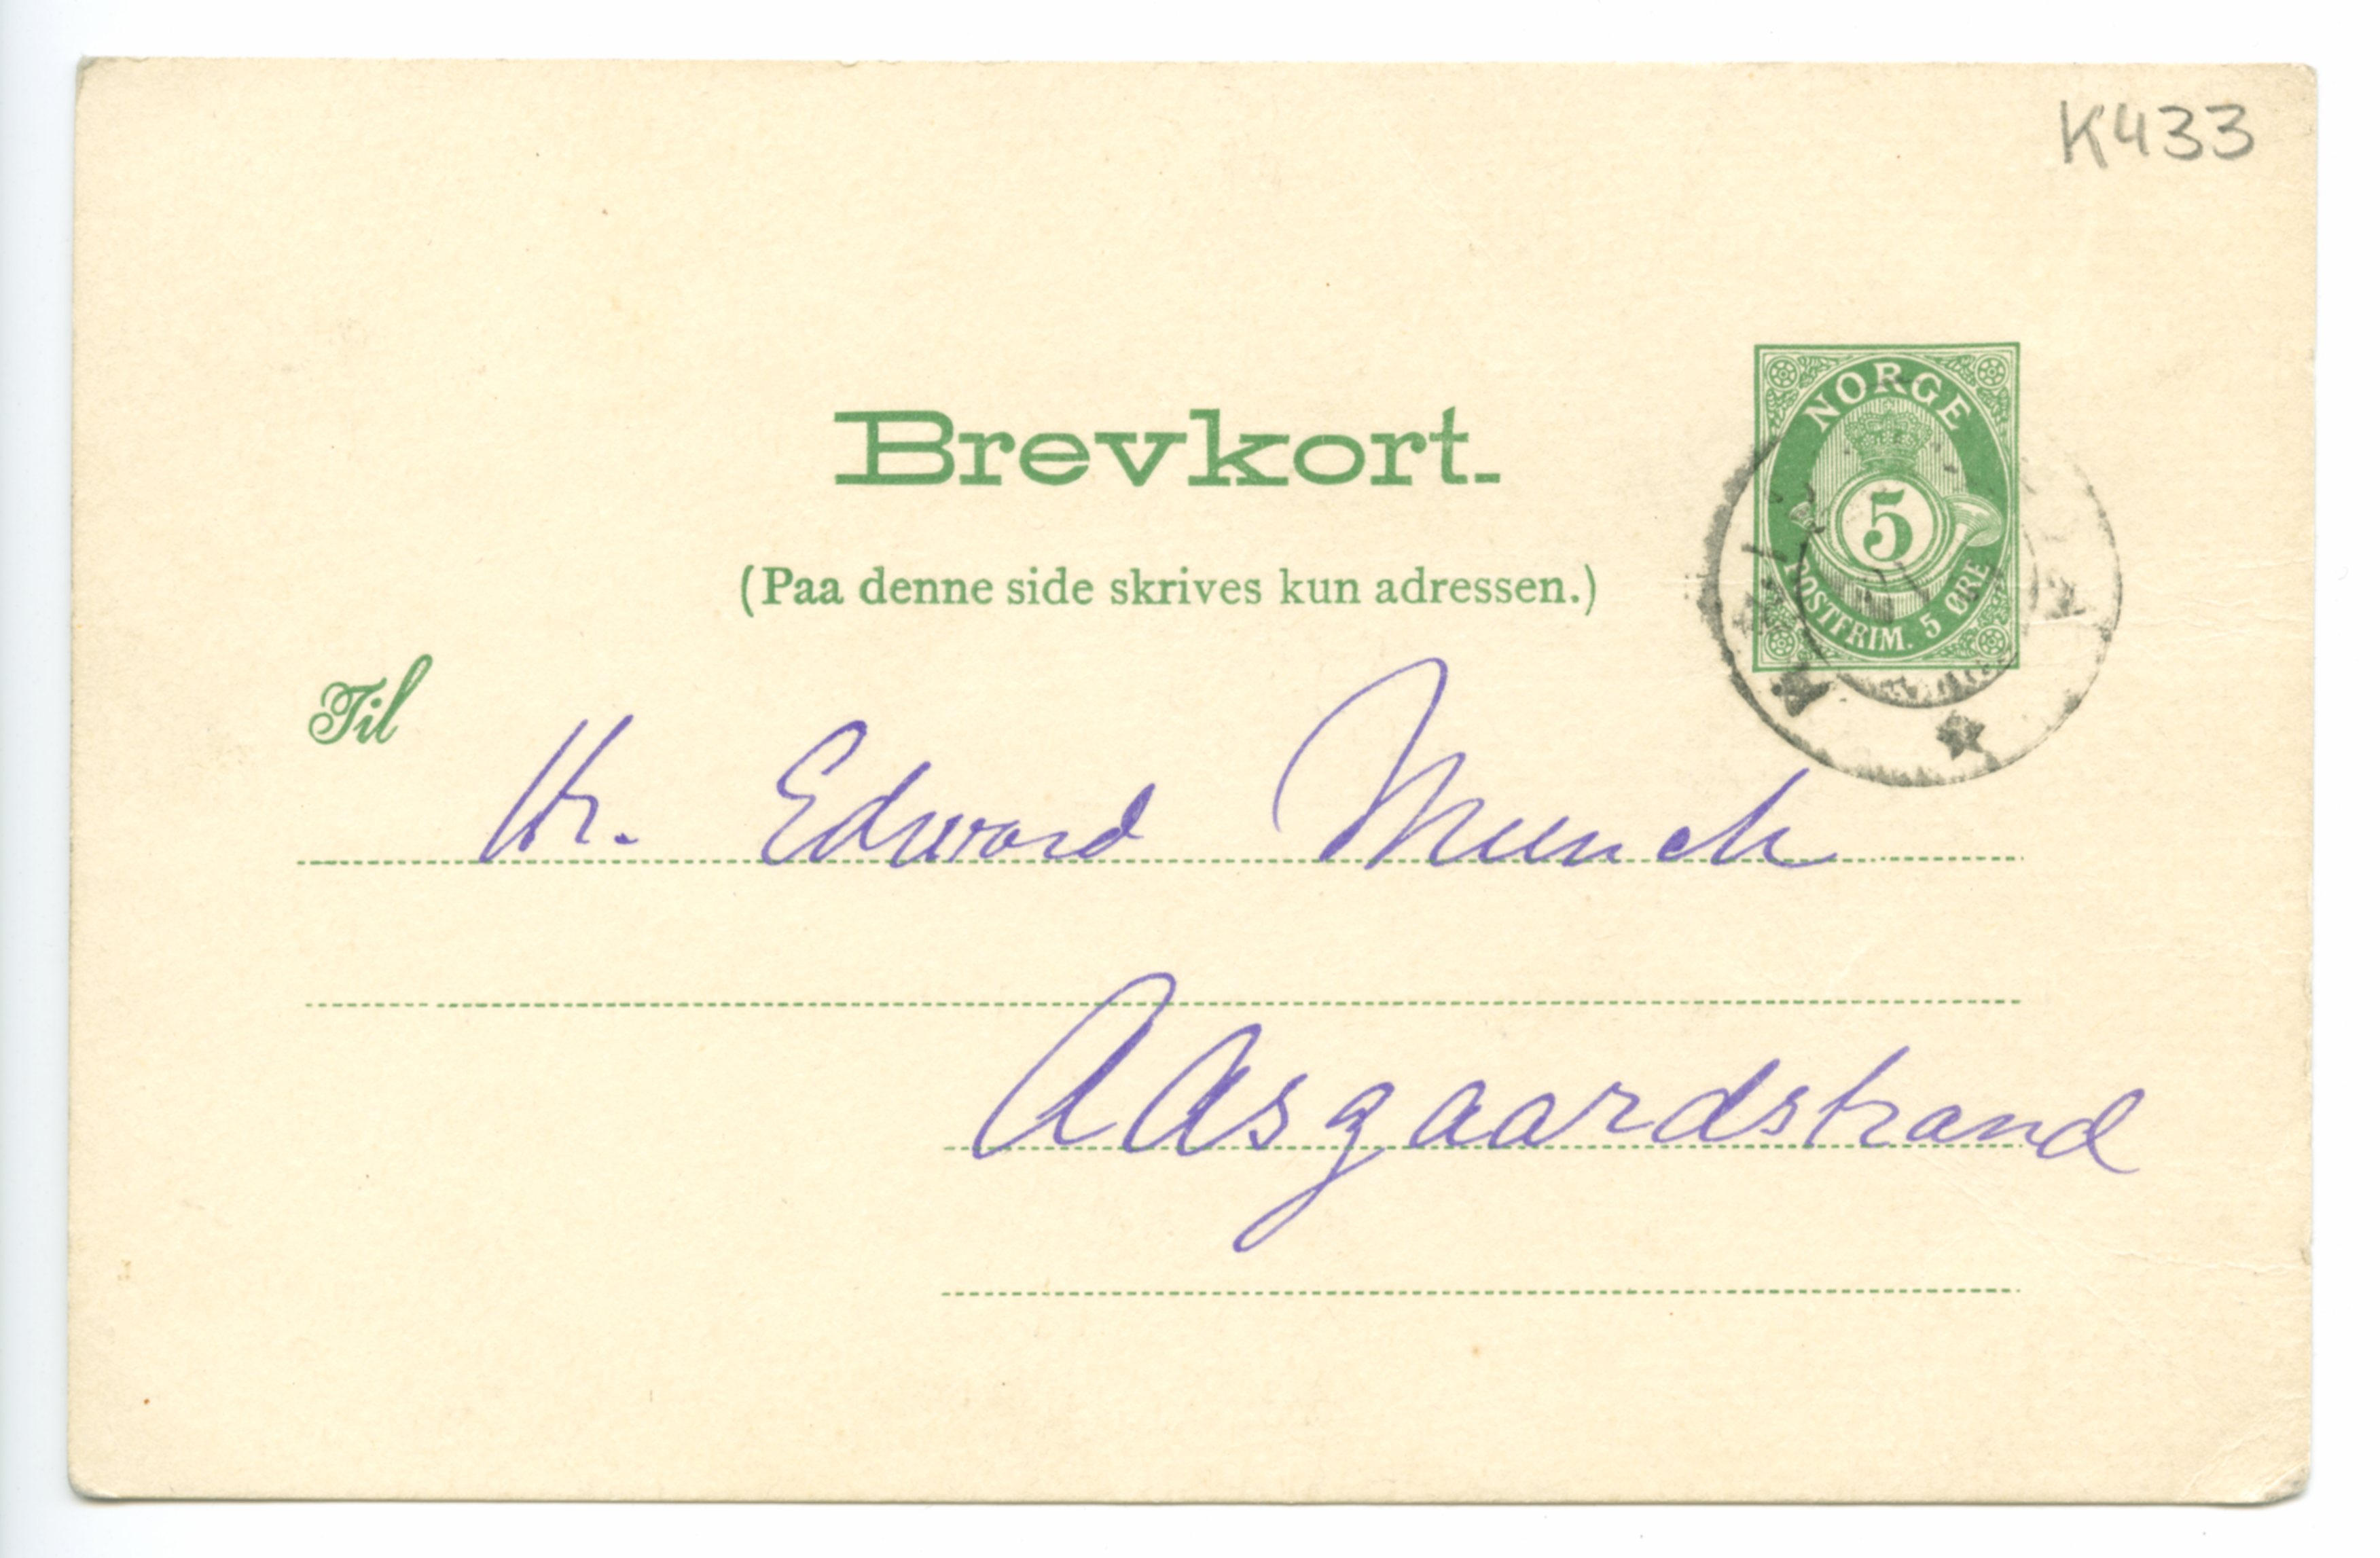 K433
Brevkort.
(Paa denne side skrives kun adressen.)
NORGE
5
POSTFRIM. 5 ØRE
Til
Hr. Edward Munch
AAsgaardstrand